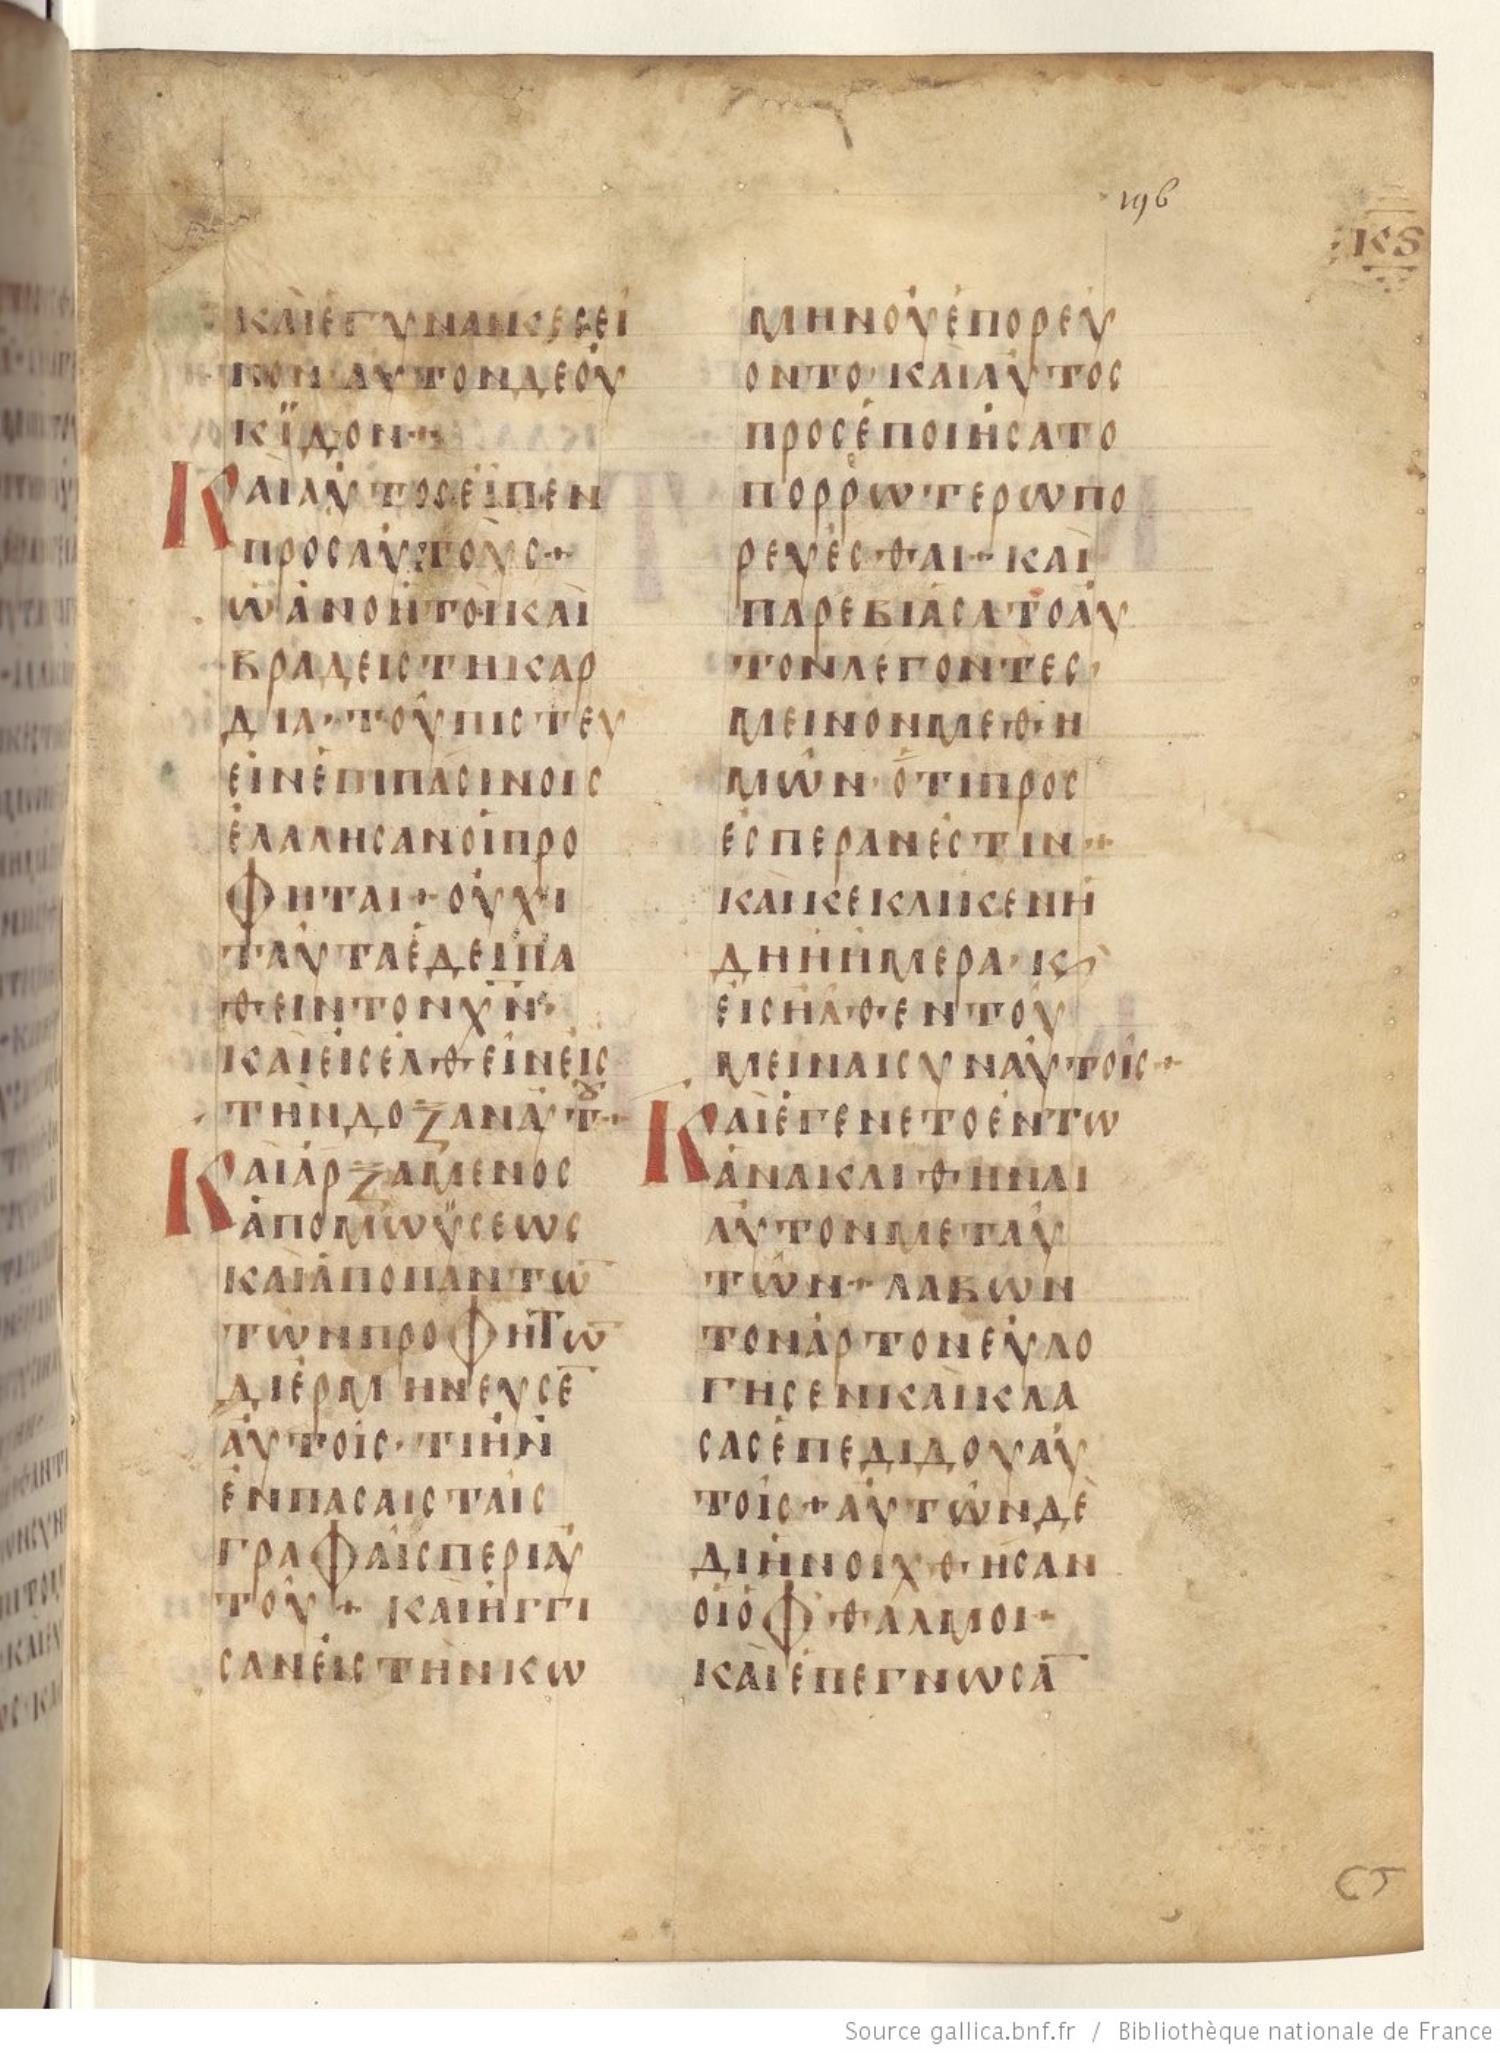 196
ΚS
ΚΑΙ ΕΓΥΝΑΙΚΕΣ ΕΙ
ΠΟΝ· ΑΥΤΟΝ ΔΕ ΟΥ
Κ ΪΔΟΝ·
ΚΑΙ ΑΥΤΟΣ ΕΙΠΕΝ
ΠΡΟΣ ΑΥΤΟΥΣ+
Ω ΑΝΟΗΤΟΙ ΚΑΙ
ΒΡΑΔΕΙΣ ΤΗ ΚΑΡ
ΔΙΑ· ΤΟΥ ΠΙΣΤΕΥ
ΕΙΝ ΕΠΙ ΠΑΣΙΝ ΟΙΣ
ΕΛΑΛΗΣΑΝ ΟΙ ΠΡΟ
ΦΗΤΑΙ+ ΟΥΧΙ
ΤΑΥΤΑ ΕΔΕΙ ΠΑ
ΘΕΙΝ ΤΟΝ Χ̅Ν̅·
ΚΑΙ ΕΙΣΕΛΘΕΙΝ ΕΙΣ
ΤΗΝ ΔΟΞΑΝ ΑΥΤȣ+
ΚΑΙ ΑΡΞΑΜΕΝΟΣ
ΑΠΟ ΜΩΫΣΕΩΣ
ΚΑΙ ΑΠΟ ΠΑΝΤΩ̅
ΤΩΝ ΠΡΟΦΗΤΩ̅
ΔΙΕΡΜΗΝΕΥΣΕ̅
ΑΥΤΟΙΣ· ΤΙ ΗΝ
ΕΝ ΠΑΣΑΙΣ ΤΑΙΣ
ΓΡΑΦΑΙΣ ΠΕΡΙ ΑΥ
ΤΟΥ+ ΚΑΙ ΗΓΓΙ
ΣΑΝ ΕΙΣ ΤΗΝ ΚΩ
ΜΗΝ ΟΥ ΕΠΟΡΕΥ
ΟΝΤΟ· ΚΑΙ ΑΥΤΟΣ
ΠΡΟΣΕΠΟΙΗΣΑΤΟ
ΠΟΡΡΩΤΕΡΩ ΠΟ
ΡΕΥΕΣΘΑΙ+ ΚΑΙ
ΠΑΡΕΒΙΑΣΑΤΟ ΑΥ
ΤΟΝ ΛΕΓΟΝΤΕΣ·
ΜΕΙΝΟΝ ΜΕΘ Η
ΜΩΝ· ΟΤΙ ΠΡΟΣ
ΕΣΠΕΡΑΝ ΕΣΤΙΝ+
ΚΑΙ ΚΕΚΛΙΚΕΝ Η
ΔΗ Η ΗΜΕΡΑ· Κϗ
ΕΙΣΗΛΘΕΝ ΤΟΥ
ΜΕΙΝΑΙ ΣΥΝ ΑΥΤΟΙΣ+
ΚΑΙ ΕΓΕΝΕΤΟ ΕΝ ΤΩ
ΑΝΑΚΛΙΘΗΝΑΙ
ΑΥΤΟΝ ΜΕΤ ΑΥ
ΤΩΝ+ ΛΑΒΩΝ
ΤΟΝ ΑΡΤΟΝ ΕΥΛΟ
ΓΗΣΕΝ ΚΑΙ ΚΛΑ
ΣΑΣ ΕΠΕΔΙΔΟΥ ΑΥ
ΤΟΙΣ+ ΑΥΤΩΝ ΔΕ
ΔΙΗΝΟΙΧΘΗΣΑΝ
ΟΙ ΟΦΘΑΛΜΟΙ·
ΚΑΙ ΕΠΕΓΝΩΣΑ̅
Source gallica.bnf.fr / Bibliothèque nationale de France